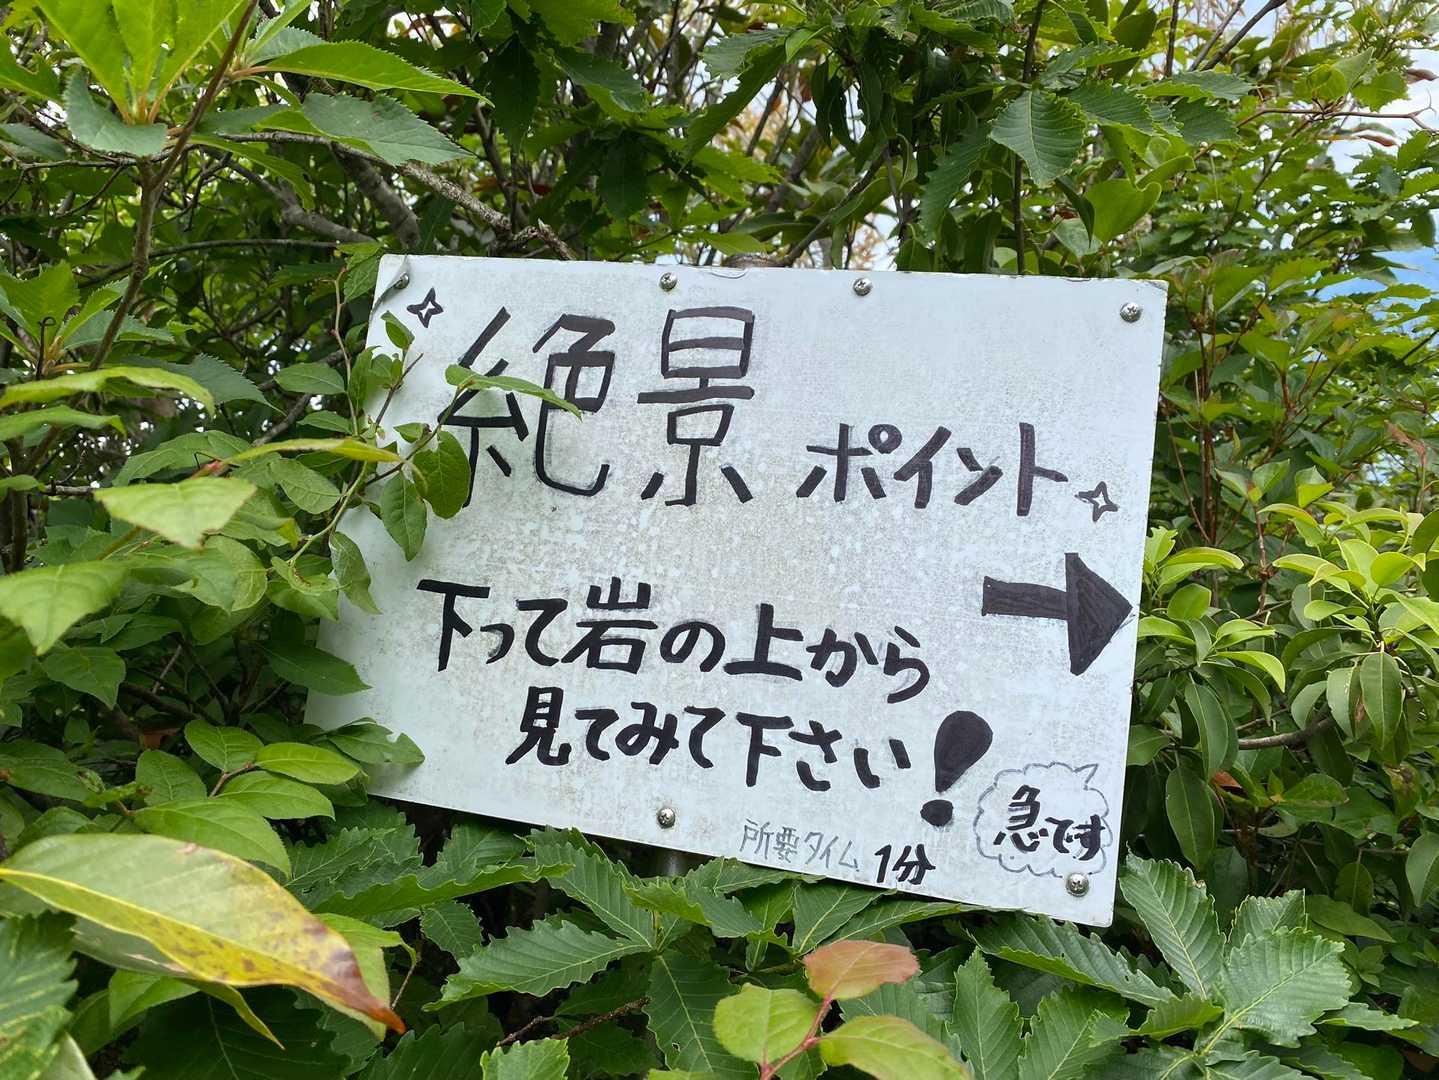 絶景ポイント
下って岩の上から
見てみて下さい!
所要タイム 1分
急です